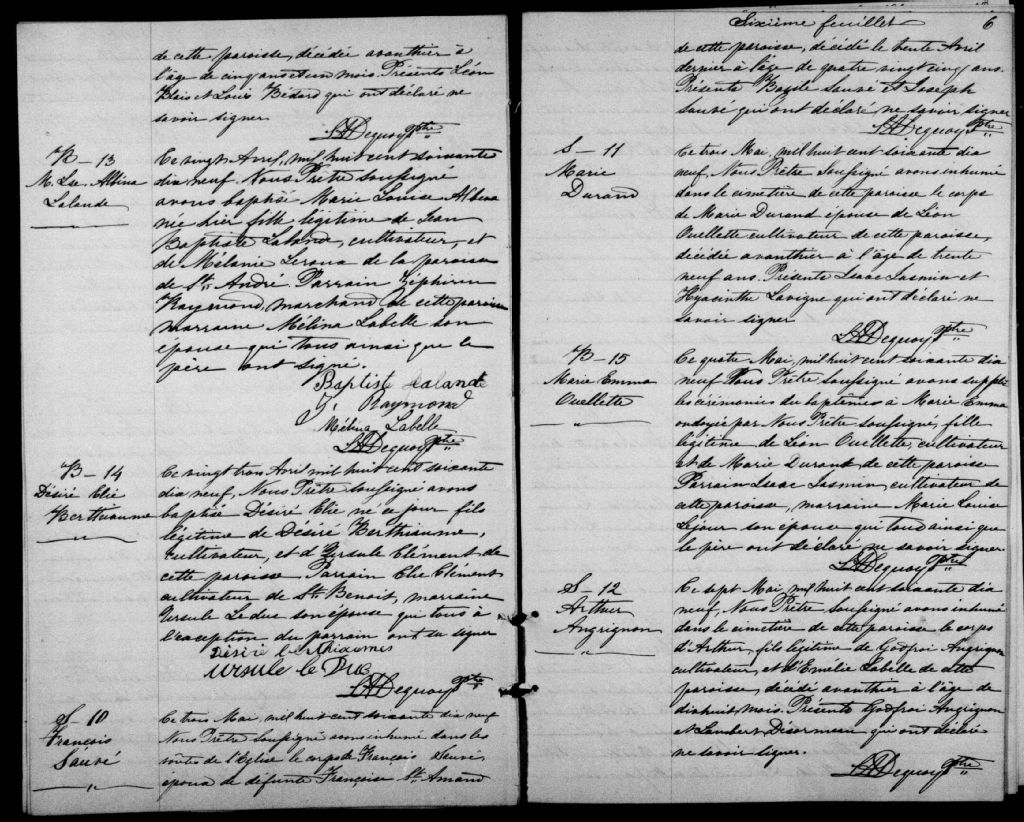 de cette paroisse, décédée avanthier à
l'âge de cinq ans et un mois. Présents Léon
Blais et Louis Bédard qui ont déclaré ne
savoir signer
Ptre
B - 13
M. Lse. Albina
Lalande
Ce vingt Avril, mil huit cent soixante
dix neuf. Nous Prêtre soussigné
avons baptisé Marie Louise Albina
née hier fille légitime de Jean
Baptiste Laland, cultivateur, et
de Mélanie Leroux de la paroisse
de St. André. Parrain Zéphirin
Raymond, marchand de cette paroisse
marraine Mélina Labelle son
épouse qui tous ainsi que le
père ont signé.
Baptiste Lalande
Z. Raymond
Mélina Labelle
Ptre
B - 14
Désiré Elie
Berthiaume
Ce vingt trois Avril mil huit cent soixante
dix neuf, Nous Prêtre soussigné avons
baptisé Désiré Elie né ce jour fils
légitime de Désiré Berthiaume,
cultivateur, et d'Ursule Clément de
cette paroisse. Parrain Elie Clément
cultivateur de St Benoit, marraine
Ursule Leduc son épouse, qui tous à
l'exception du parrain ont su signer
Désiré
Ursule le Duc
Ptre
S - 10
François
Sauvé
Ce trois Mai, mil huit cent soixante dix neuf
Nous Prêtre soussigné avons inhumé dans les
voutes de l'Eglise le corps de François Sauvé
époux de défunte Françoise St. Amand
Sixième feuillet 6
de cette paroisse, décédé le trente Avril
dernier à l'âge de quatre vingt cinq ans.
Présents Bazile Sauvé et Joseph
Sauvé qui ont déclaré ne savoir signer
Ptre
S - 11
Marie
Durand
Ce trois Mai, mil huit cent soixante dix
neuf, Nous Prêtre soussigné avons inhumé
dans le cimetière de cette paroisse le corps
de Marie Durand épouse de Léon
Ouellette cultivateur de cette paroisse,
décédée avanthier à l'âge de trente
neuf ans. Présents Isaac Jasmin et
Hyacinthe Lavigne qui ont déclaré ne
savoir signer
Ptre
B - 15
Marie Emma
Ouellette
Ce quatre Mai, mil huit cent soixante dix
neuf Nous Prêtre soussigné avons supplé
les cérémonies du baptêmes à Marie Emma
ondoyée par Nous Prêtre soussigné, fille
légitime de Léon Ouellette, cultivateur
et de Marie Durand de cette paroisse
Parrain Isaac Jasmin, cultivateur de
cette paroisse, marraine Marie Louise
Lejour son épouse qui tous ainsi que
le père ont déclaré ne savoir signer.
Ptre
S - 12
Arthur
Angrignon
Ce sept Mai, mil huit cent soixante dix
neuf, Nous Prêtre soussigné avons inhumé
dans le cimetière de cette paroisse le corps
d'Arthur, fils légitime de Godfroi Angrignon
cultivateur, et d'Emélie Labelle de cette
paroisse, décédé avanthier à l'âge de
dix huit mois. Présents Godfroi Angrignon
et Lambert Désormeau qui ont déclaré
ne savoir signer.
Ptre